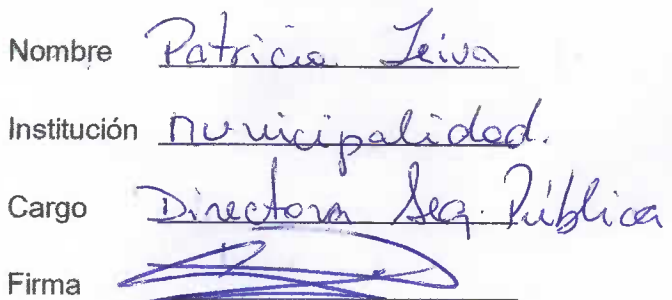 Nombre Patricia Leiva
Institución Municipalidad.
Cargo Directora Seg. Pública
Firma